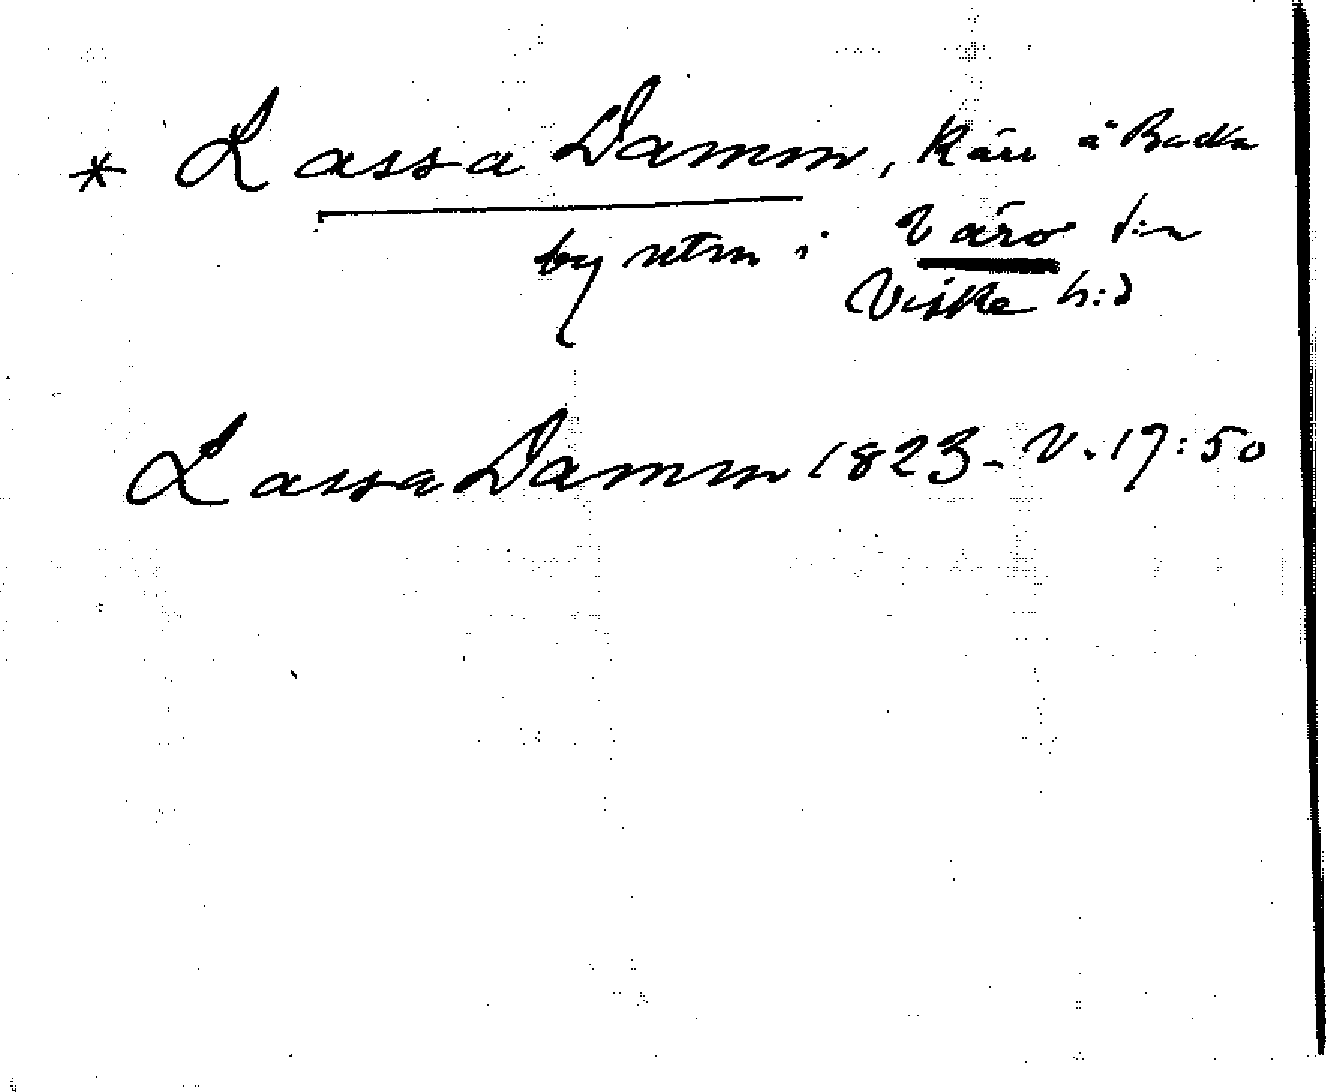 * Lassa Damm, Kärr å Backa
by utm i Värö s:n
Viske h:d
Lassa Damm 1823 - V. 17:50